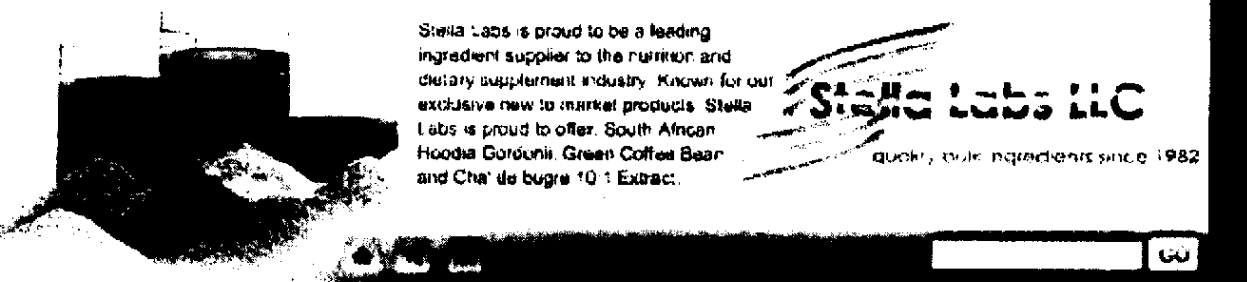 Stella Labs is proud to be a leading
ingredient supplier to the nutrition and
dietary supplement industry. Known for our
exclusive new to market products. Stella
Labs is proud to offer. South African
Hoodia Gordonii. Green Coffee Bean
and Cha' de bugre 10:1 Extract.
Stella Labs LLC
quality bulk ingredients since 1982
GO